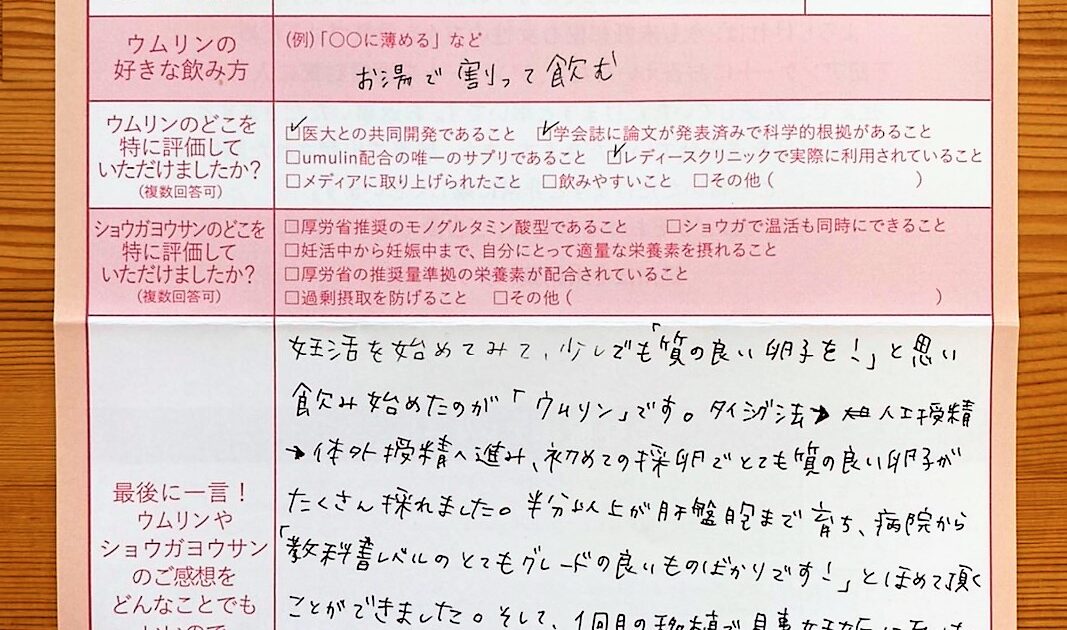 ウムリンの
好きな飲み方
(例)「〇〇に薄める」など
お湯で割って飲む
ウムリンのどこを
特に評価して
いただけましたか?
(複数回答可)
☑医大との共同開発であること ☑学会誌に論文が発表済みで科学的根拠があること
□umulin配合の唯一のサプリであること ☑レディースクリニックで実際に利用されていること
□メディアに取り上げられたこと □飲みやすいこと □その他( )
ショウガヨウサンのどこを
特に評価して
いただけましたか?
(複数回答可)
□厚労省推奨のモノグルタミン酸型であること □ショウガで温活も同時にできること
□妊活中から妊娠中まで、自分にとって適量な栄養素を摂れること
□厚労省の推奨量準拠の栄養素が配合されていること
□過剰摂取を防げること □その他( )
最後に一言!
ウムリンや
ショウガヨウサン
のご感想を
どんなことでも
いいので
妊活を始めてみて、少しでも「質の良い卵子を!」と思い
飲み始めたのが「ウムリン」です。タイミング法→人工授精
→体外授精へ進み、初めての採卵でとても質の良い卵子が
たくさん採れました。半分以上が胚盤胞まで育ち、病院から
「教科書レベルのとてもグレードの良いものばかりです!」とほめて頂く
ことができました。そして、1個目の移植で見事